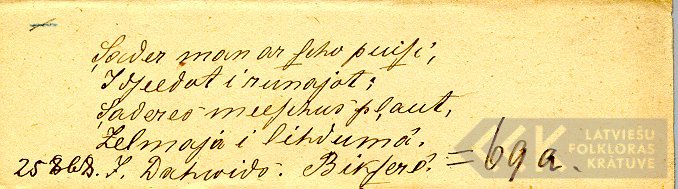 Sader man ar scho puisi,
I dseedot i runajot;
Saderes meeschus pļaut,
Zelmajâ i lihdumâ.
25868. J. Dahwids. Bikserê. = 69a.
LATVIEŠU
FOLKLORAS
KRĀTUVE